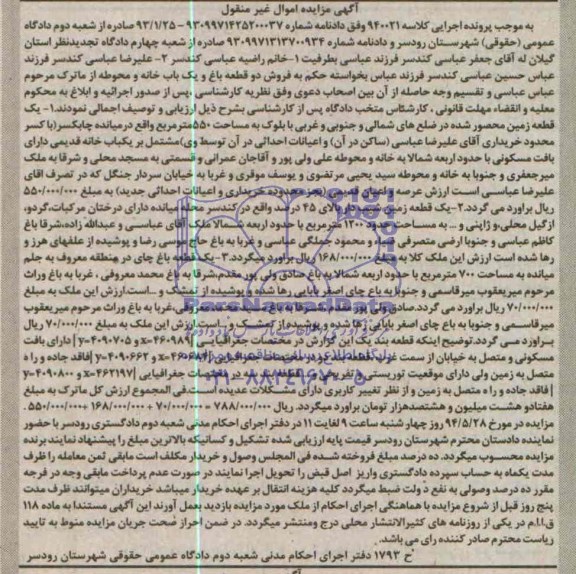 آگهی مزایده اموال غیر منقول
به موجب پرونده اجرایی کلاسه ۹۴۰۰۲۱ وفق دادنامه شماره ۹۳۰۹۹۷۱۴۲۵۲۰۰۰۳۷ - ۹۳/۱/۲۵ صادره از شعبه دوم دادگاه
عمومی (حقوقی) شهرستان رودسر و دادنامه شماره ۹۳۰۹۹۷۱۳۱۳۷۰۰۹۳۴ صادره از شعبه چهارم دادگاه تجدیدنظر استان
گیلان له آقای جعفر عباسی کندسر فرزند عباسی بطرفیت ۱-خانم راضیه عباسی کندسر ۲- علیرضا عباسی کندسر فرزند
عباس حسین عباسی کندسر فرزند عباس بخواسته حکم به فروش دو قطعه باغ و یک باب خانه و محوطه از ماترک مرحوم
عباس عباسی و تقسیم وجه حاصله از آن بین اصحاب دعوی وفق نظریه کارشناسی ،پس از صدور اجرائیه و ابلاغ به محکوم
معلیه و انقضاء مهلت قانونی ، کارشناس منتخب دادگاه پس از کارشناسی بشرح ذیل ارزیابی و توصیف اجمالی نمودند.۱- یک
قطعه زمین محصور شده در ضلع های شمالی و جنوبی و غربی با بلوک به مساحت ۵۵۰مترمربع واقع درمیانده چابکسر(با کسر
محدود خریداری آقای علیرضا عباسی (ساکن در آن) و اعیانات احداثی در آن توسط وی)مشتمل بر یکباب خانه قدیمی دارای
بافت مسکونی با حدود اربعه شمالا به خانه و محوطه علی ولی پور و آقاجان عمرانی و قسمتی به مسجد محلی و شرقا به ملک
میرجعفری و جنوبا به خانه و محوطه سید یحیی مرتقوی و یوسف موقری و غربا به خیابان سردار جنگل که در تصرف اقای
علیرضا عباسی است ارزش عرصه واعیان قدیمی (بجز محدوده خریداری و اعیانات احداثی جدید) به مبلغ ۵۵۰/۰۰۰/۰۰۰
ریال براورد می گردد.۲-یک قطعه زمین شیب دار بالای ۴۵ درصد واقع در کندسر محله میانده دارای درختان مرکبات،گردو،
ازگیل محلی،و ژاپنی و ... به مساحت حدود ۱۲۰۰ مترمربع با حدود اربعه شمالا ملک آقای عباسی و عبدالله زاده،شرقا باغ
کاظم عباسی و جنوبا ارضی متصرفی بنیاد و محمود جملگی عباسی و غربا به باغ حاج موسی رضا و پوشیده از علفهای هرز و
رها شده است ارزش این ملک کلا به مبلغ ۱۶۸/۰۰۰/۰۰۰ ریال براورد میگردد.۳-یک قطعه باغ چای در منطقه معروف به جلم
میانده به مساحت ۷۰۰ مترمربع با حدود اربعه شمالا به باغ صادق ولی پور مقدم،شرقا به باغ محمد معروفی ، غربا به باغ وراث
مرحوم میریعقوب میرقاسمی و جنوبا به باغ چای اصغر بابایی رها شده و پوشیده از تمشک و ...است.ارزش این ملک به مبلغ
۷۰/۰۰۰/۰۰۰ ریال براورد می گردد.صادق ولی پور مقدم ،شرقا به باغ محمد معروفی،غربا به باغ وراث مرحوم میریعقوب
میرقاسمی و جنوبا به باغ چای اصغر بابایی رها شده و پوشیده از تمشک و ...است.ارزش این ملک به مبلغ ۷۰/۰۰۰/۰۰۰ ریال
براورد می گردد.توضیح اینکه قطعه بند یک این گزارش در مختصات جغرافیایی x=۴۶۰۹۸۹ و y=۴۰۹۰۷۰۵ دارای بافت
مسکونی و متصل به خیابان از سمت غرب، قطعه بند دو در مختصات جغرافیایی y=۴۰۹۰۶۶۲ فاقد جاده و راه
متصل به زمین ولی دارای موقعیت توریستی و تفریحی، قطعه بند سه در مختصات جغرافیایی x=۴۶۲۱۹۷ و y=۴۰۹۰۸۰۰
فاقد جاده و راه متصل به زمین و از نظر تغییر کاربری دارای مشکلات عدیده است.فی المجموع ارزش کل ماترک به مبلغ
هفتادو هشت میلیون و هشتصدهزار تومان براورد میگردد. ریال ۷۸۸/۰۰۰/۰۰۰ = ۷۰/۰۰۰/۰۰۰ + ۱۶۸/۰۰۰/۰۰۰ +۵۵۰/۰۰۰/۰۰۰ .
مزایده در مورخ ۹۴/۵/۲۸ روز چهار شنبه ساعت ۹ لغایت ۱۱ در دفتر اجرای احکام مدنی شعبه دوم دادگستری رودسر با حضور
نماینده دادستان محترم شهرستان رودسر قیمت پایه ارزیابی شده تشکیل و کسانیکه بالاترین مبلغ را پیشنهاد نمایند برنده
مزایده محسوب میگردد. ده درصد مبلغ فروخته شده فی المجلس وصول و خریدار مکلف است مابقی ثمن معامله را ظرف
مدت یکماه به حساب سپرده دادگستری واریز اصل قبض را تحویل اجرا نمایند در صورت عدم پرداخت مابقی وجه در فرجه
مقرر ده درصد وصولی به نفع دولت ضبط میگردد کلیه هزینه انتقال بر عهده خریدار میباشد خریداران میتوانند ظرف مدت
پنج روز قبل از شروع مزایده با هماهنگی اجرای احکام از ملک مورد مزایده بازدید بعمل آورند این آگهی مستندا به ماده ۱۱۸
ق.ا.ا.م در یکی از روزنامه های کثیرالانتشار محلی درج ومنتشر میگردد. در ضمن احراز صحت جریان مزایده منوط به تایید
ریاست محترم صادر کننده رای می باشد.
ح ۱۷۹۳ دفتر اجرای احکام مدنی شعبه دوم دادگاه عمومی حقوقی شهرستان رودسر
ParsNamadData
۰۲۱-۸۸۳۴۹۶۷۰-۵